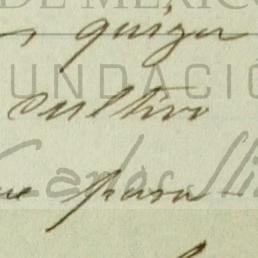 DE MÉXICO
quiza
FUNDACIÓ
cultivo
Carlos Sli
que para